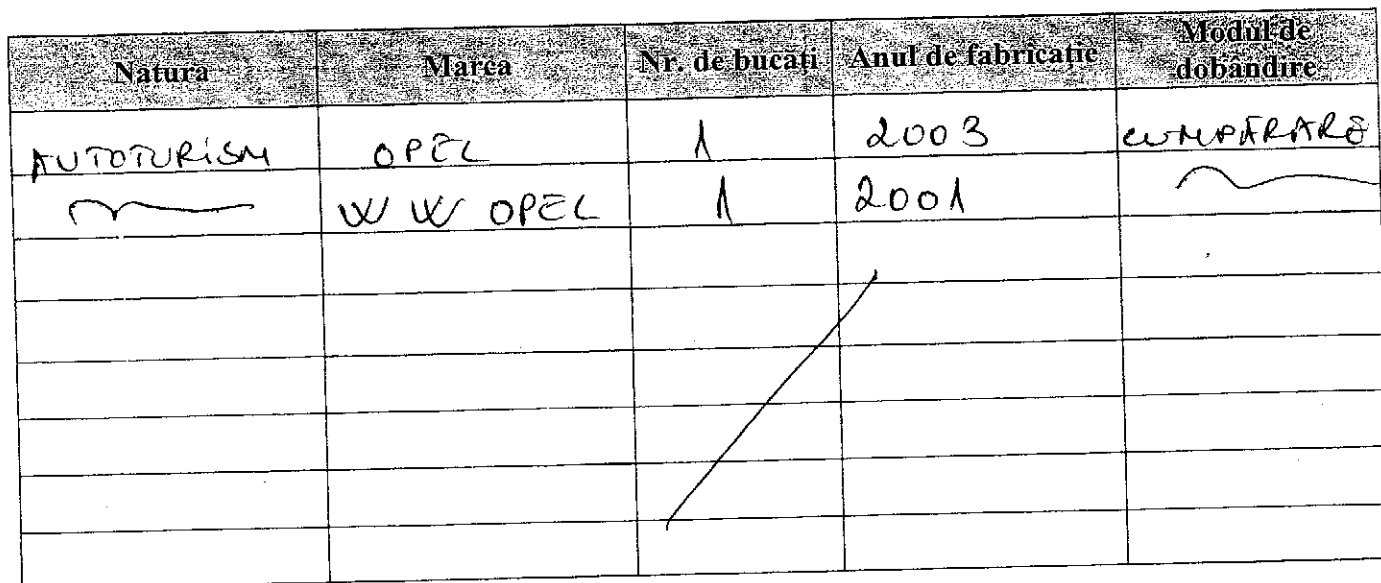 Natura Marca Nr. de bucăți Anul de fabricație Modul de dobândire
AUTOTURISM OPEL 1 2003 CUMPĂRARE
W W OPEL 1 2001